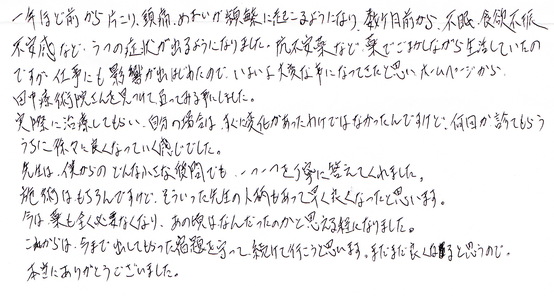 一年ほど前から肩こり、頭痛、めまいが頻繁に起こるようになり、数ヶ月前から、不眠、食欲不振
不安感など、うつの症状が出るようになりました。抗不安薬など、薬でごまかしながら生活していたの
ですが、仕事にも影響が出はじめたので、いよいよ大変な事になってきたと思い、ホームページから、
田中療術院さんを見つけて、直ってみる事にしました。
実際に治療してもらい、自分の場合は、すぐに変化があったわけではなかったんですけど、何回か診てもらう
うちに徐々に良くなっていく感じでした。
先生は、僕からのどんな小さな質問でも、一つ一つを丁寧に答えてくれました。
施術はもちろんですけど、そういった先生の人柄もあって早く良くなったと思います。
今は薬も全く必要なくなり、あの頃はなんだったのかと思える程になりました。
これからは、今まで出してもらった宿題を守って、続けて行こうと思います。まだまだ良くなると思うので、
本当にありがとうございました。